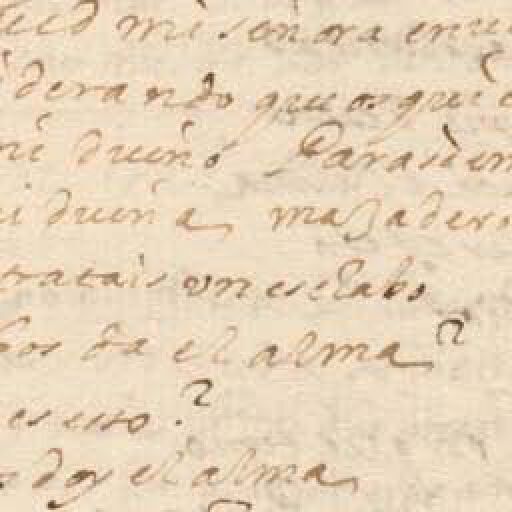 mi señora en
derando que os qui
mi dueño Para sien
mi dueña, mas ader
tratais un esclabo
os da el alma?
es esto?
doy el alma,